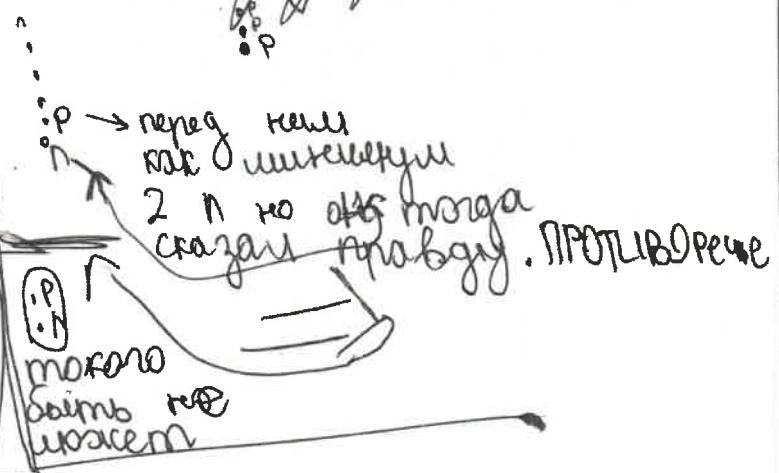 P
п
P → перед ним
п
как минимум
2 п но он тогда
сказал правду. ПРОТИВОРечие
P
п
токого
быть не
может